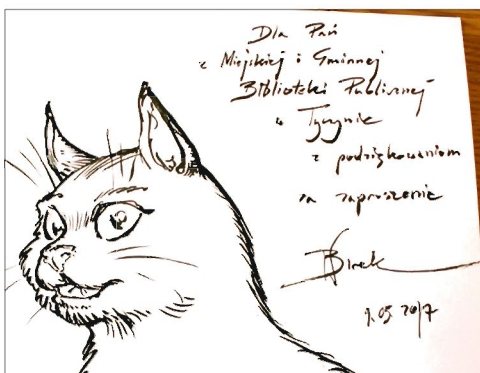 Dla Pań
z Miejskiej i Gminnej
Biblioteki Publicznej
w Tyczynie
z podziękowaniem
za zaproszenie
9.05 2017